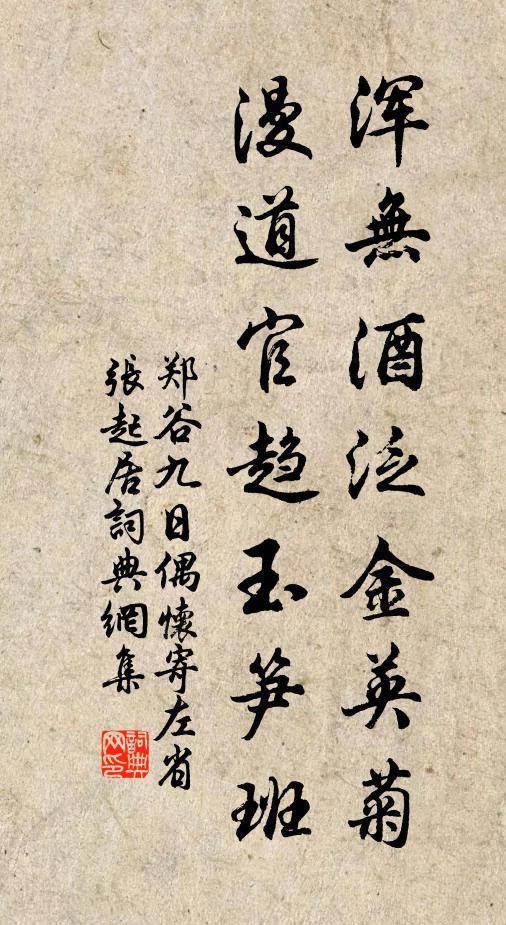 浑無酒泛金英菊
漫道官趋玉笋班
郑谷九日偶懷寄左省
張起居詞典網集
詞典
网印